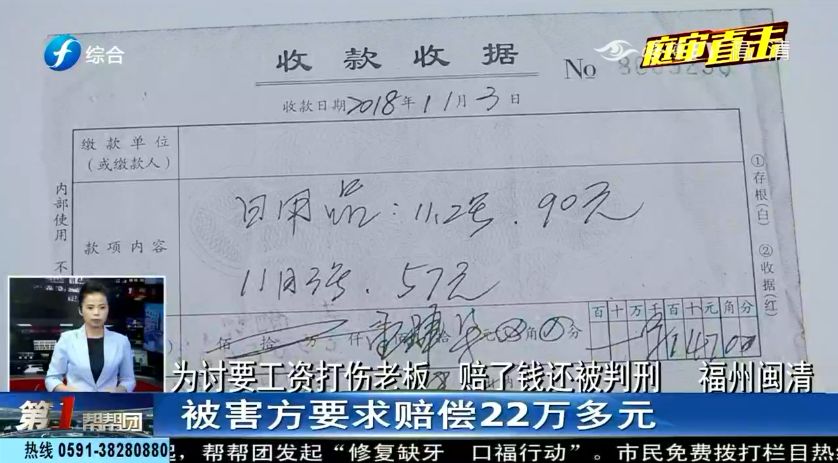 综合
庭审直击
收款收据
No
收款日期2018年11月3日
缴款单位
(或缴款人)
内部使用 不
款项内容
日用品:11.2号.90元
11月3号.57元
①存根(白) ②收据(红)
佰 拾 万 仟 元 角 分
百十万千百十元角分
14700
为讨要工资打伤老板 赔了钱还被判刑 福州闽清
第1帮帮团
被害方要求赔偿22万多元
热线 0591-38280880
,帮帮团发起“修复缺牙 口福行动”。市民免费拨打栏目热